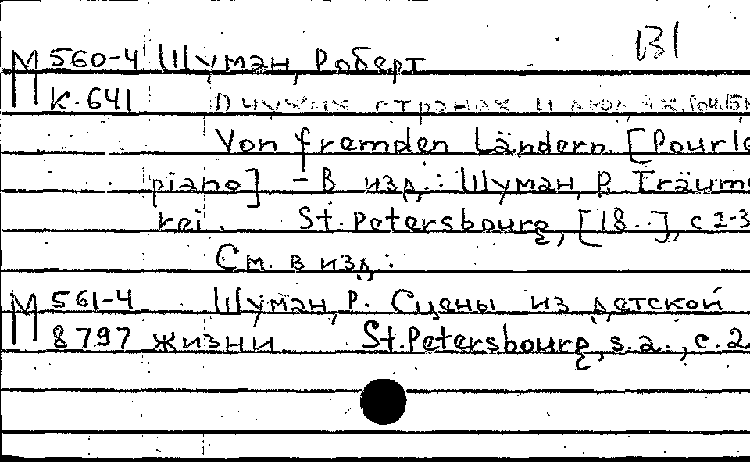 131
М 560-4 Шуман, Роберт
К-641 О чужих странах и людях.
Von fremden Ländern. [Pour le
piano] – В изд.: Шуман, Р. Träume-
rei. St. Petersbourg, [18..], с 2-3
См. в изд.:
М 561-4 Шуман, Р. Сцены из детской
8797 жизни St. Petersbourg, s.a., c. 2